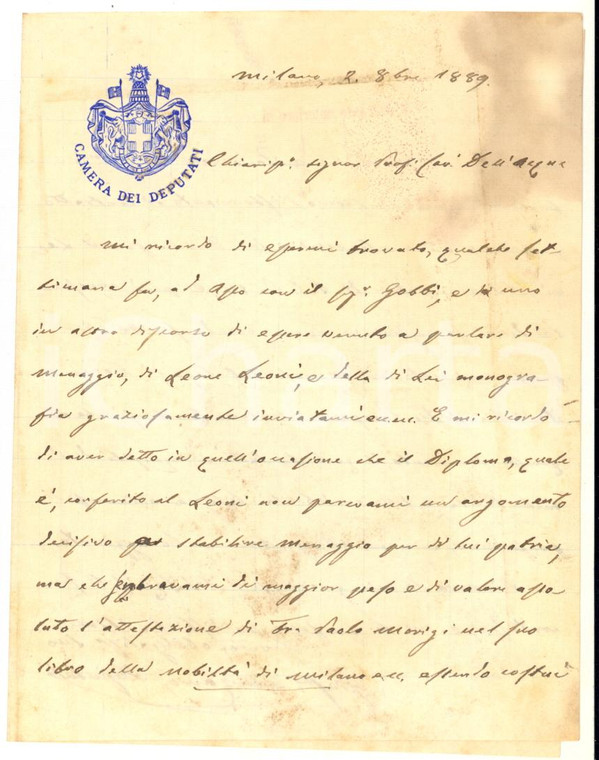 Milano, 2. 8bre 1889.
CAMERA DEI DEPUTATI
Chiarissº. signor Prof. Cav. Dell'Acqua
Mi ricordo di essermi trovato, qualche set-
timana fa, ad Asso con il sigr. Gobbi, e in uno
in altro discorso di essere venuto a parlare di
Menaggio, di Leone Leoni, e della di Lei monogra-
fia graziosamente inviatami ecc. E mi ricordo
di aver detto in quell'occasione che il Diploma, quale
è, conferito al Leoni non parevami un argomento
decisivo per stabilire Menaggio per di lui patria,
ma che sembravami di maggior peso e di valore asso-
luto l'attestazione di Fra Paolo Morigi nel suo
libro della Nobiltà di Milano ecc. essendo costui